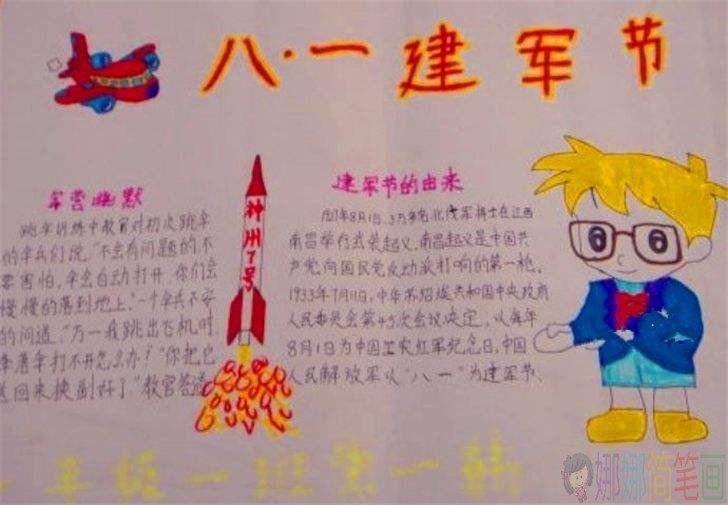 八·一建军节
军营幽默
跳伞训练中教官对初次跳伞
的伞兵们说,"不会有问题的不
要害怕,伞会自动打开,你们会
慢慢的落到地上."一个伞兵不安
的问道,"万一我跳出飞机时,
伞打不开怎么办?""你把它
送回来换副好了."教官答道
神州7号
建军节的由来
年8月1日,3万多名北伐军将士在江西
南昌举行武装起义,南昌起义是中国共
产党向国民党反动派打响的第一枪。
1933年7月11日,中华苏维埃共和国中央政府
人民委员会第45次会议决定,以每年
8月1日为中国工农红军纪念日,中国
人民解放军以"八一"为建军节、
年级一班第一
娜娜简笔画